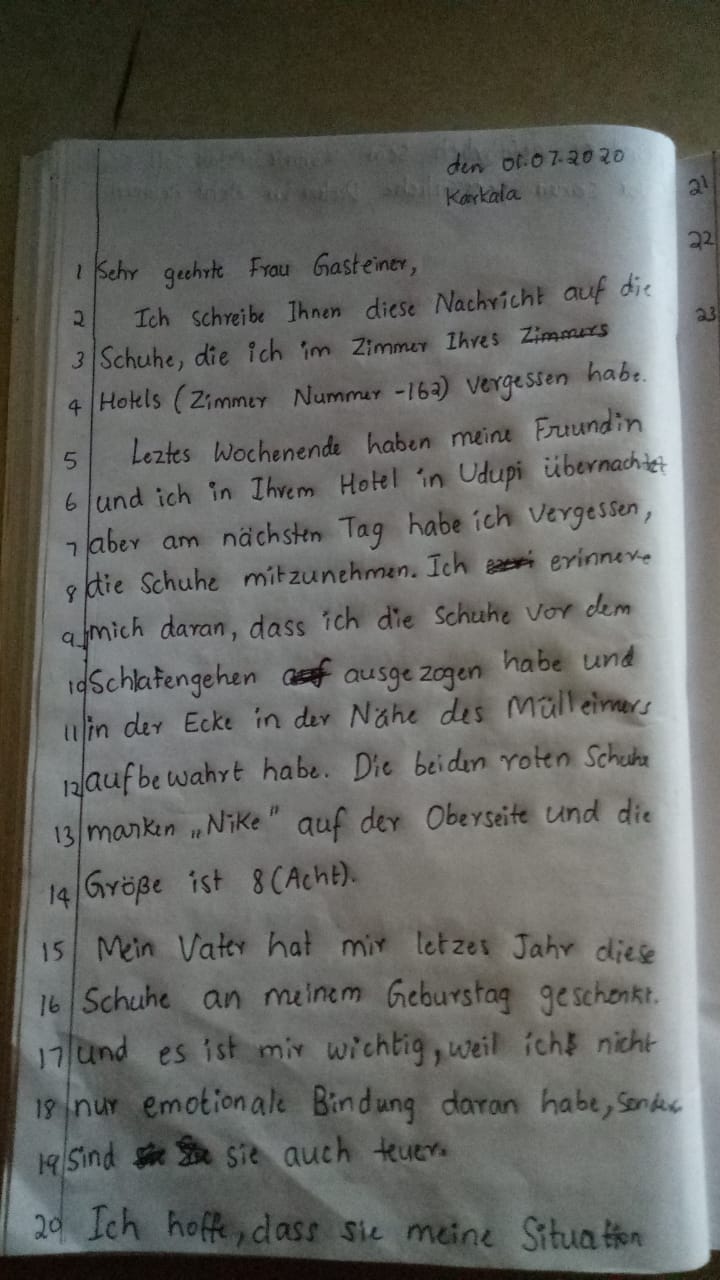 den 01.07.2020
Karkala
1 Sehr geehrte Frau Gasteiner,
2 Ich schreibe Ihnen diese Nachricht auf die
3 Schuhe, die ich im Zimmer Ihres Zimmers
4 Hotels (Zimmer Nummer -162) vergessen habe.
5 Leztes Wochenende haben meine Freundin
6 und ich in Ihrem Hotel in Udupi übernachtet
7 aber am nächsten Tag habe ich vergessen,
8 die Schuhe mitzunehmen. Ich erinnere
9 mich daran, dass ich die Schuhe vor dem
10 Schlafengehen auf ausgezogen habe und
11 in der Ecke in der Nähe des Mülleimers
12 aufbewahrt habe. Die beiden roten Schuhe
13 marken „Nike" auf der Oberseite und die
14 Größe ist 8 (Acht).
15 Mein Vater hat mir letzes Jahr diese
16 Schuhe an meinem Geburstag geschenkt.
17 und es ist mir wichtig, weil ich nicht
18 nur emotionale Bindung daran habe,
19 sind sie auch teuer.
20 Ich hoffe, dass sie meine Situation
21
22
23